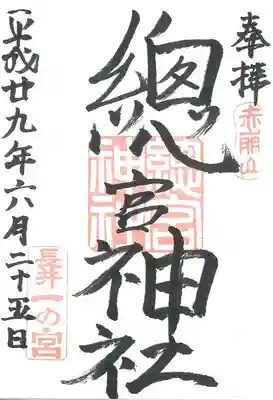 奉拝
赤崩山
總宮神社
總宮神社
長井一の宮
平成廿九年六月二十五日